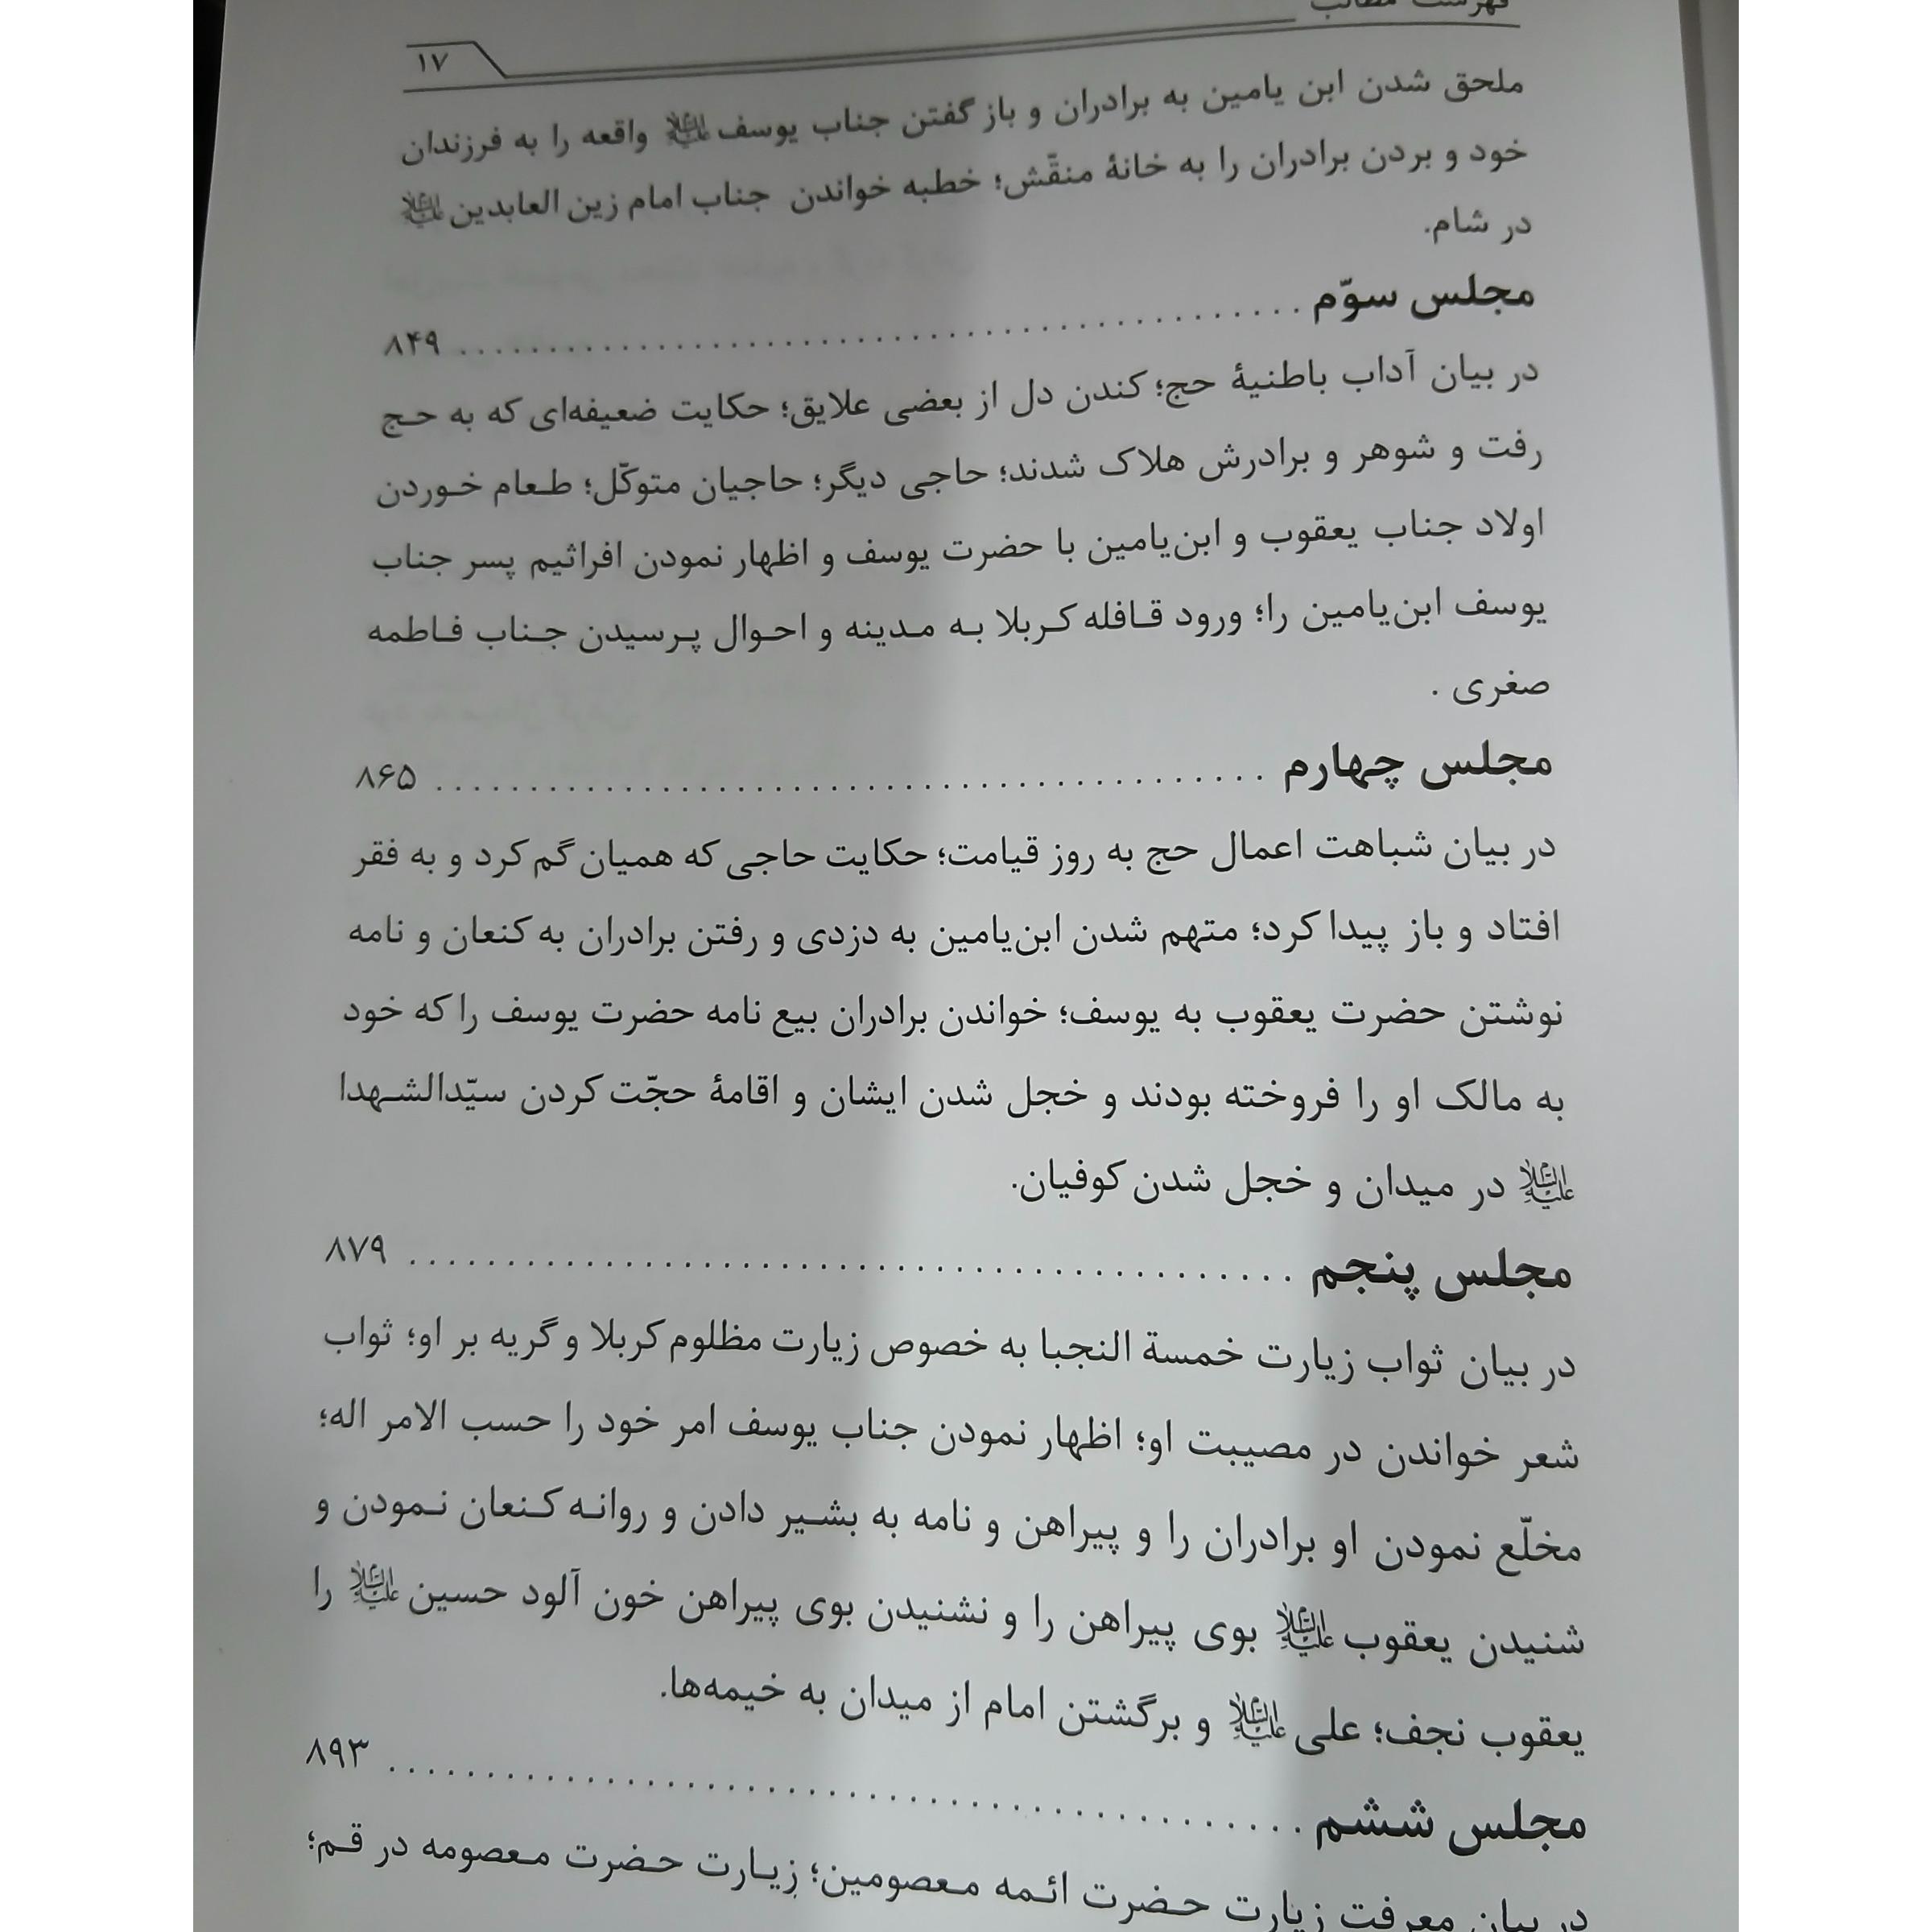 فهرست مطالب
۱۷
ملحق شدن ابن یامین به برادران و باز گفتن جناب یوسف علیه‌السلام واقعه را به فرزندان
خود و بردن برادران را به خانهٔ منقّش؛ خطبه خواندن جناب امام زین العابدین علیه‌السلام
در شام.
مجلس سوّم ........................................ ۸۴۹
در بیان آداب باطنیهٔ حج؛ کندن دل از بعضی علایق؛ حکایت ضعیفه‌ای که به حج
رفت و شوهر و برادرش هلاک شدند؛ حاجی دیگر؛ حاجیان متوکّل؛ طعام خوردن
اولاد جناب یعقوب و ابن‌یامین با حضرت یوسف و اظهار نمودن افراثیم پسر جناب
یوسف ابن‌یامین را؛ ورود قافله کربلا به مدینه و احوال پرسیدن جناب فاطمه
صغری .
مجلس چهارم ........................................ ۸۶۵
در بیان شباهت اعمال حج به روز قیامت؛ حکایت حاجی که همیان گم کرد و به فقر
افتاد و باز پیدا کرد؛ متهم شدن ابن‌یامین به دزدی و رفتن برادران به کنعان و نامه
نوشتن حضرت یعقوب به یوسف؛ خواندن برادران بیع نامه حضرت یوسف را که خود
به مالک او را فروخته بودند و خجل شدن ایشان و اقامهٔ حجّت کردن سیّدالشهدا
علیه‌السلام در میدان و خجل شدن کوفیان.
مجلس پنجم ........................................ ۸۷۹
در بیان ثواب زیارت خمسة النجبا به خصوص زیارت مظلوم کربلا و گریه بر او؛ ثواب
شعر خواندن در مصیبت او؛ اظهار نمودن جناب یوسف امر خود را حسب الامر اله؛
مخلّع نمودن او برادران را و پیراهن و نامه به بشیر دادن و روانه کنعان نمودن و
شنیدن یعقوب علیه‌السلام بوی پیراهن را و نشنیدن بوی پیراهن خون آلود حسین علیه‌السلام را
یعقوب نجف؛ علی علیه‌السلام و برگشتن امام از میدان به خیمه‌ها.
مجلس ششم ........................................ ۸۹۳
در بیان معرفت زیارت حضرت ائمه معصومین؛ زیارت حضرت معصومه در قم؛